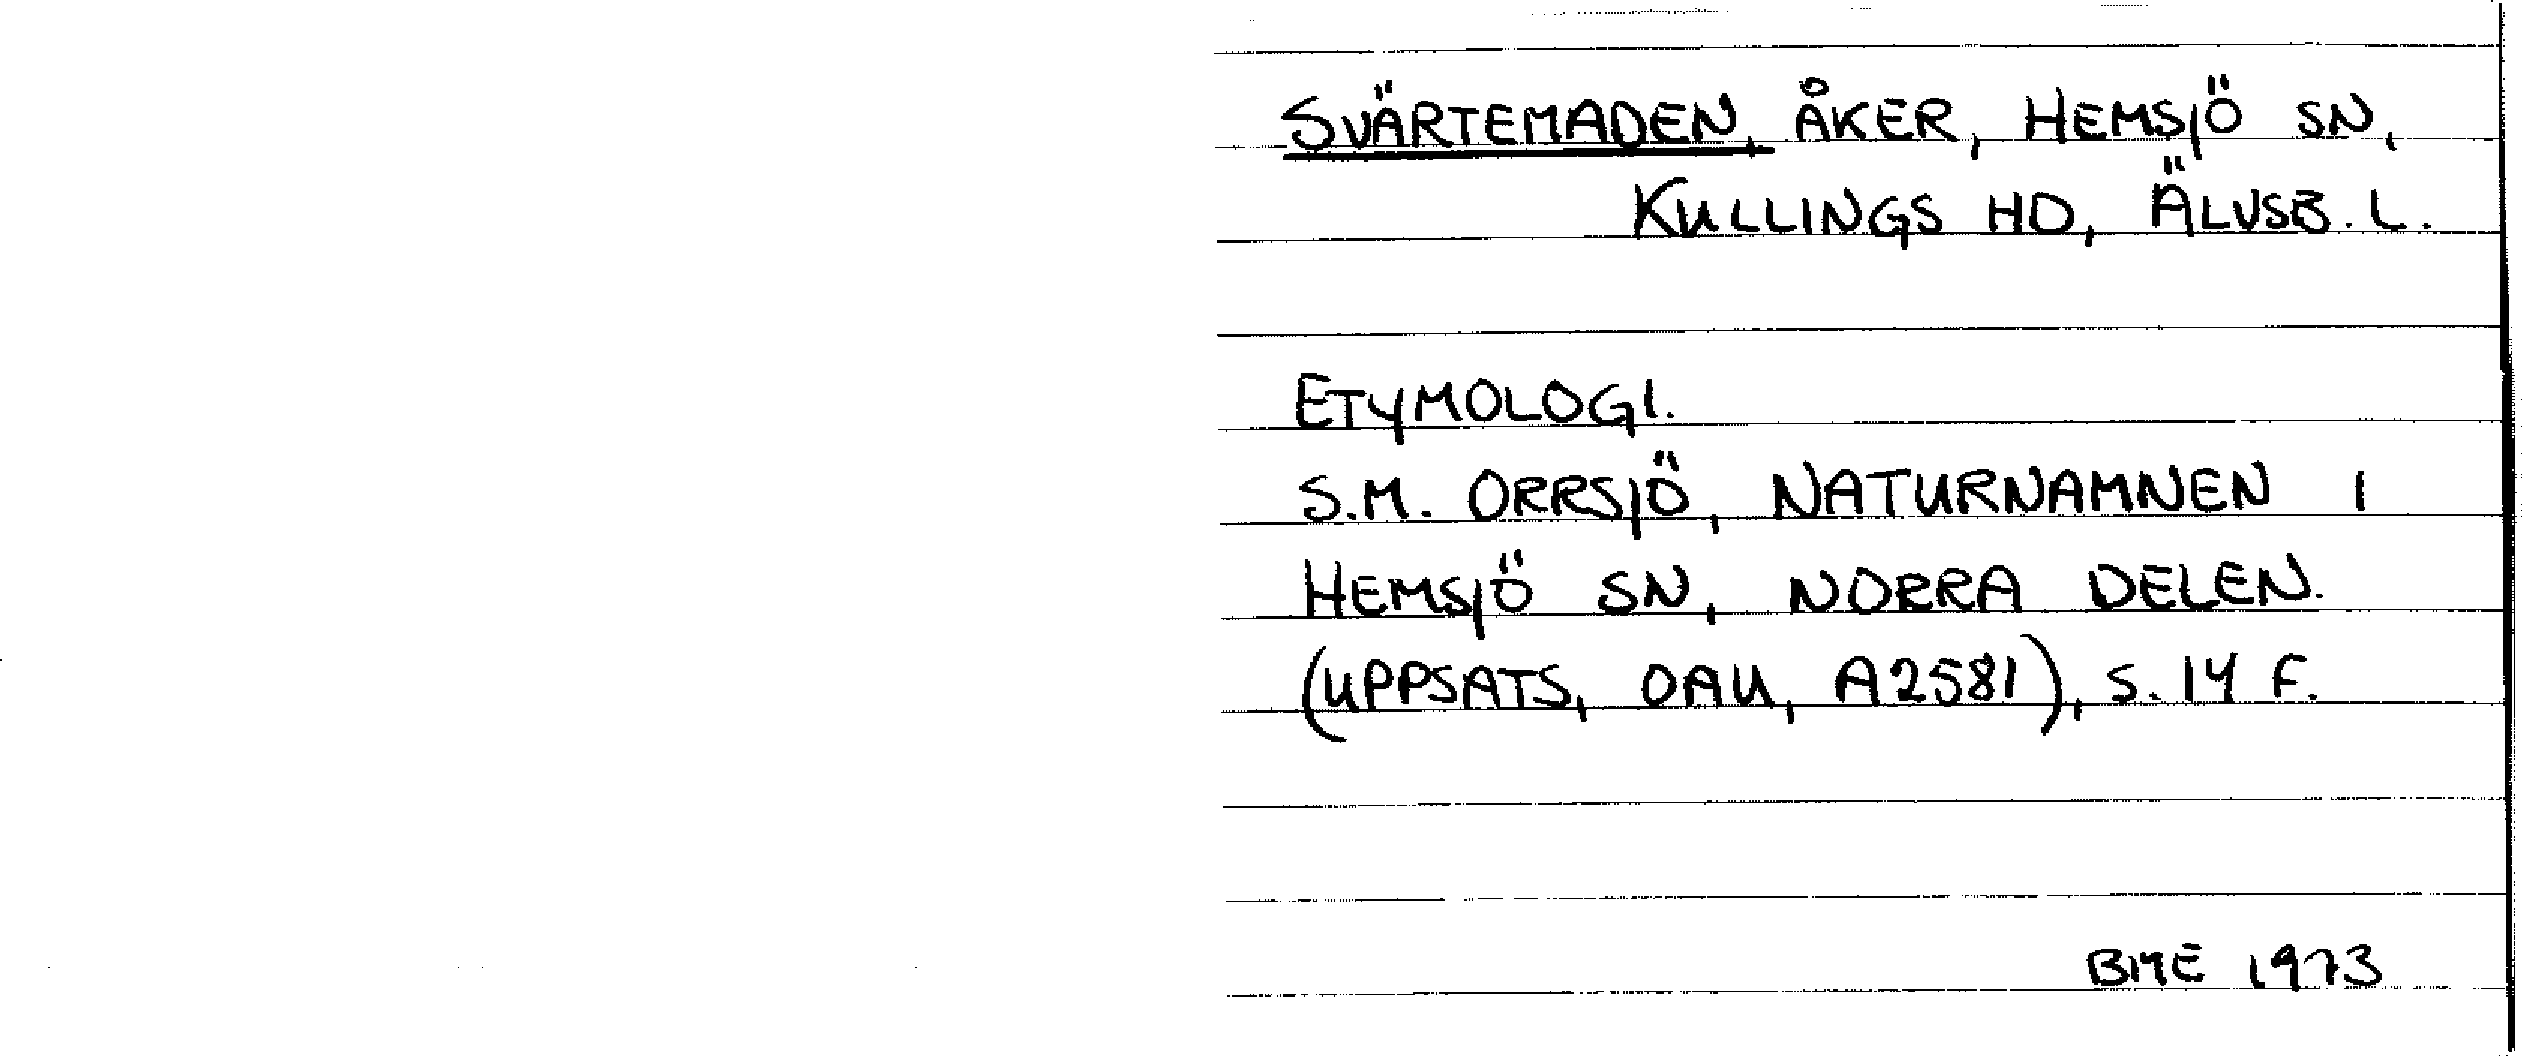 SVÄRTEMADEN, ÅKER, HEMSJÖ SN,
KULLINGS HD, ÄLVSB. L.
ETYMOLOGI.
S.M. ORRSJÖ, NATURNAMNEN I
HEMSJÖ SN, NORRA DELEN.
(UPPSATS, OAU, A2581), S. 14 F.
BME 1973